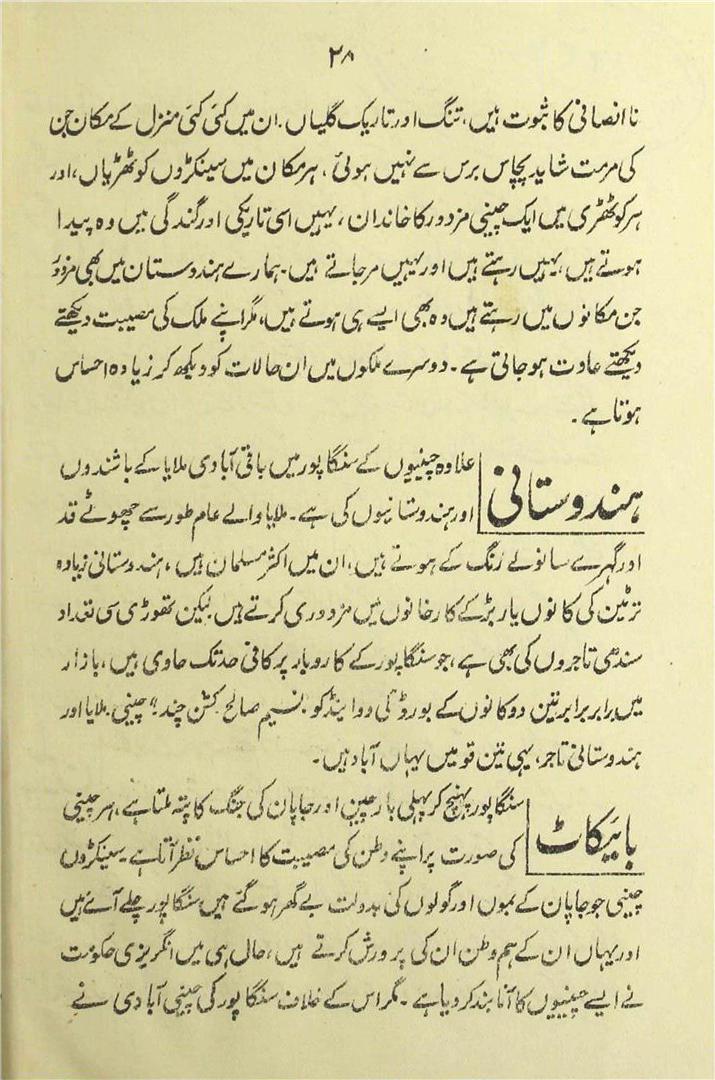 ۲۸
نا انصافی کا ثبوت ہیں، تنگ اور تاریک گلیاں. ان میں کئی کئی منزل کے مکان جن
کی مرمت شاید پچاس برس سے نہیں ہوئی، ہر مکان میں سینکڑوں کوٹھڑیاں، اور
ہر کوٹھڑی میں ایک چینی مزدور کا خاندان، یہیں اسی تاریکی اور گندگی میں وہ پیدا
ہوتے ہیں، یہیں رہتے ہیں اور یہیں مر جاتے ہیں۔ ہمارے ہندوستان میں بھی مزدور
جن مکانوں میں رہتے ہیں وہ بھی ایسے ہی ہوتے ہیں، مگر اپنے ملک کی مصیبت دیکھتے
دیکھتے عادت ہو جاتی ہے۔ دوسرے ملکوں میں ان حالات کو دیکھ کر زیادہ احساس
ہوتا ہے۔
ہندوستانی
علاوہ چینیوں کے سنگاپور میں باقی آبادی ملایا کے باشندوں
اور ہندوستانیوں کی ہے۔ ملایا والے عام طور سے چھوٹے قد
اور گہرے سانولے رنگ کے ہوتے ہیں، ان میں اکثر مسلمان ہیں، ہندوستانی زیادہ
تر ٹین کی کانوں یا ربڑ کے کارخانوں میں مزدوری کرتے ہیں لیکن تھوڑی سی تعداد
سندھی تاجروں کی بھی ہے، جو سنگاپور کے کاروبار پر کافی حد تک حاوی ہیں، بازار
میں برابر برابر تین دوکانوں کے بورڈ "لی ووا اینڈ کو" "نسیم صالح" "کشن چند" چینی، ملایا اور
ہندوستانی تاجر، یہی تین قومیں یہاں آباد ہیں۔
بائیکاٹ
سنگاپور پہنچ کر پہلی بار چین اور جاپان کی جنگ کا پتہ ملتا ہے، ہر چینی
کی صورت پر اپنے وطن کی مصیبت کا احساس نظر آتا ہے۔ سینکڑوں
چینی جو جاپان کے بموں اور گولوں کی بدولت بے گھر ہو گئے ہیں سنگاپور چلے آئے ہیں
اور یہاں ان کے ہم وطن ان کی پرورش کرتے ہیں، حال ہی میں انگریزی حکومت
نے ایسے چینیوں کا آنا بند کر دیا ہے۔ مگر اس کے خلاف سنگاپور کی چینی آبادی نے